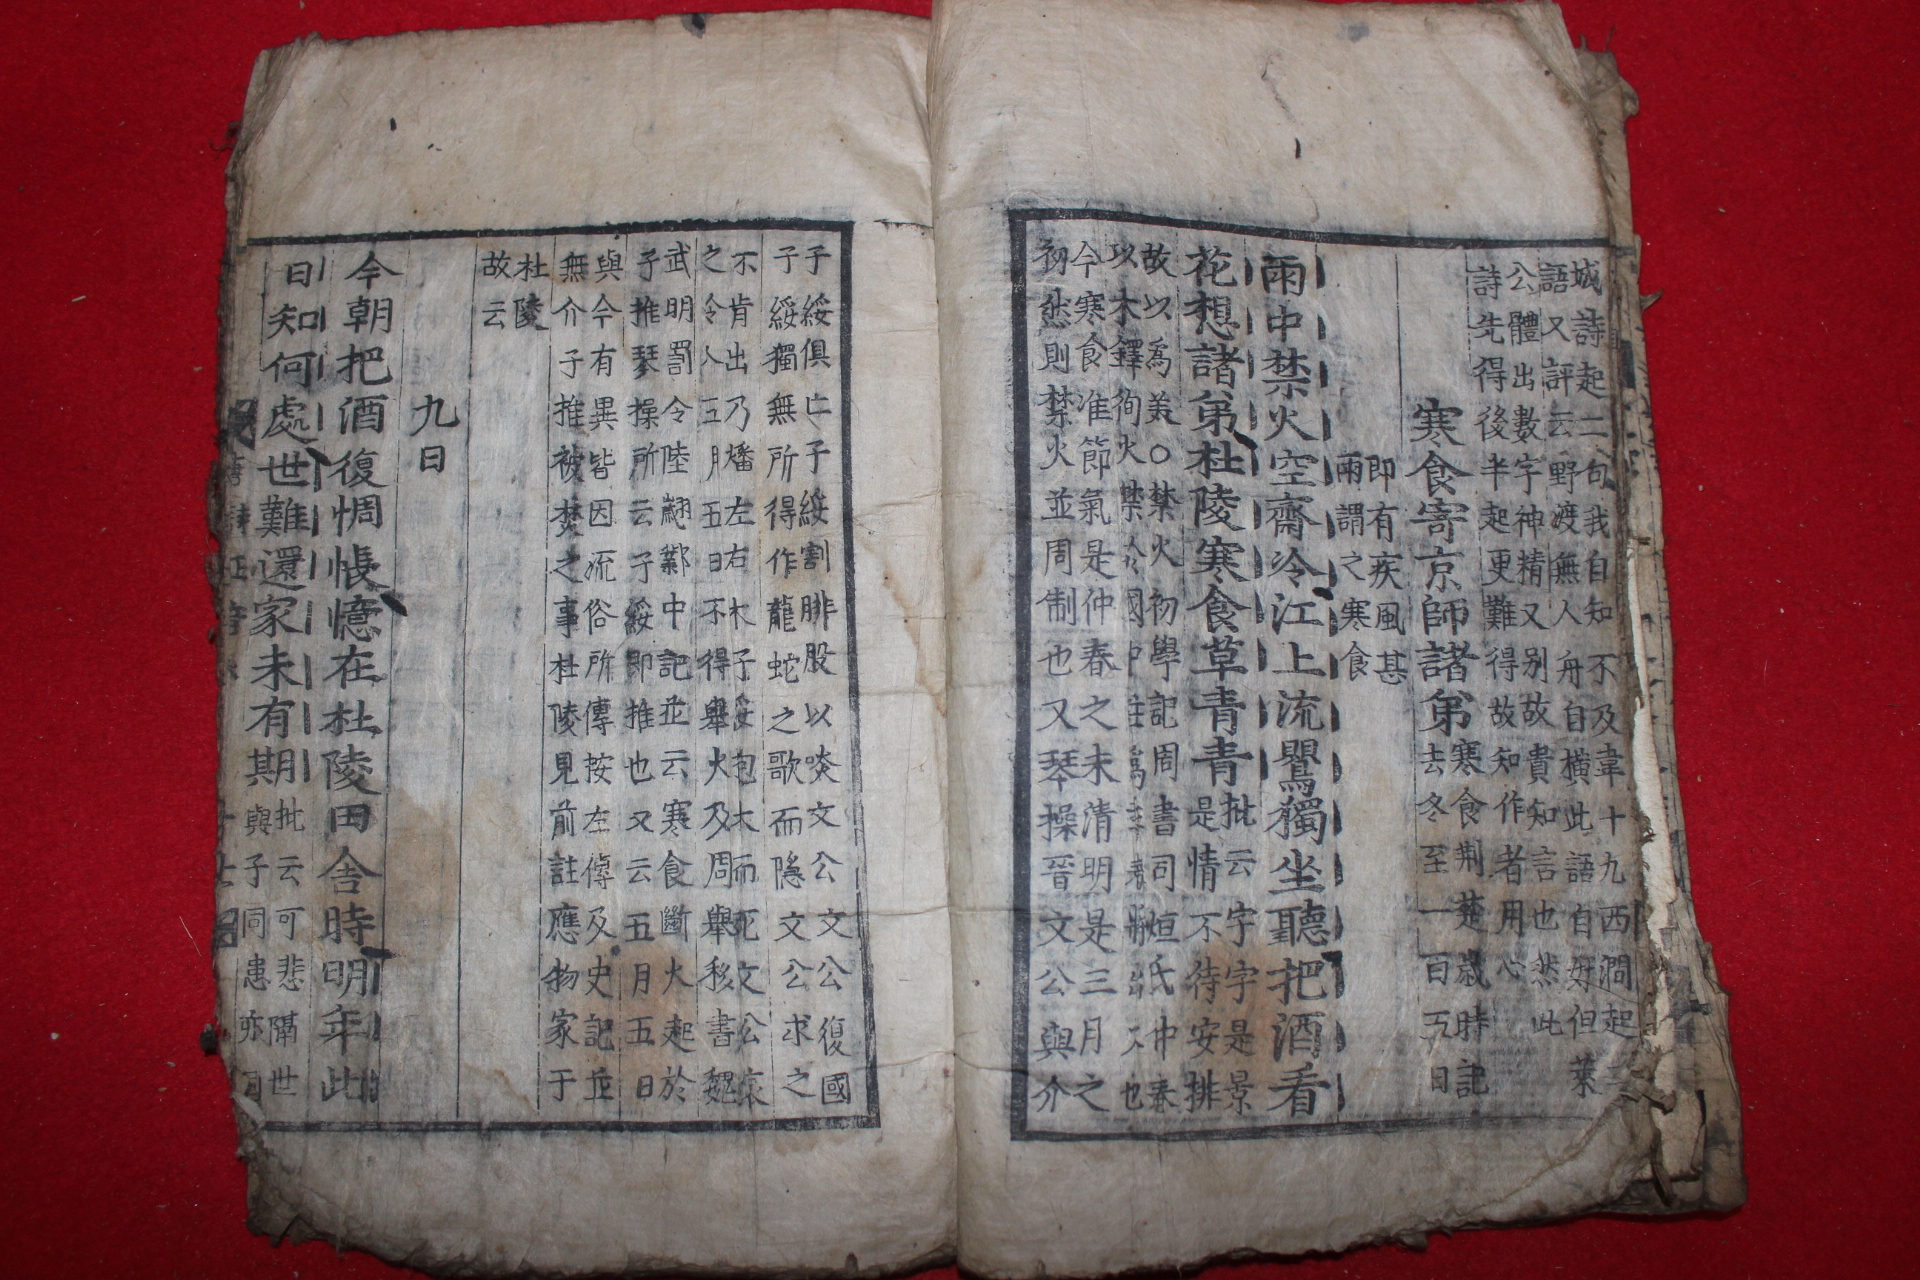 城詩起二句我自知不及韋十九西澗起三
語又評云野渡無人舟自橫此語自好但萊
公體出數字神精又別故貴知言也然此
詩先得後半起更難得故知作者用心
寒食寄京師諸弟
寒食荆楚歲時記
去冬至一百五日
即有疾風甚
雨謂之寒食
雨中禁火空齋冷江上流鶯獨坐聽把酒看
花想諸弟杜陵寒食草青青
批云字字是景
是情不待安排
故以爲美〇禁火初學記周書司烜氏仲春
以木鐸徇火禁於國中
今寒食准節氣是仲春之末清明是三月之
初然則禁火並周制也又琴操晉文公與介
子綏俱亡子綏割腓股以啖文公文公復國
子綏獨無所得作龍蛇之歌而隱文公求之
不肯出乃燔左右木子綏抱木而死文公哀
之令人五月五日不得舉火及周舉移書魏
武明罰令陸翽鄴中記並云寒食斷火起於
子推琴操所云子綏即推也又云五月五日
與今有異皆因流俗所傳按左傳及史記並
無介子推被焚之事杜陵見前註應物家于
杜陵
故云
九日
今朝把酒復惆悵憶在杜陵田舍時明年此
日知何處世難還家未有期
批云可悲隔世
與子同患亦